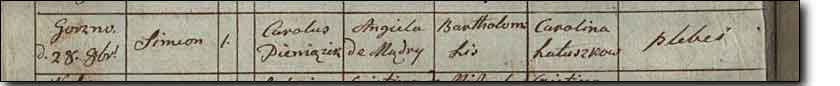 Gorzno.
d. 28. 9bris
Simeon
1.
Carolus
Pieniązek
Angiela
de Mądry
Bartholom
Lis
Carolina
Łatuszkow
plebei